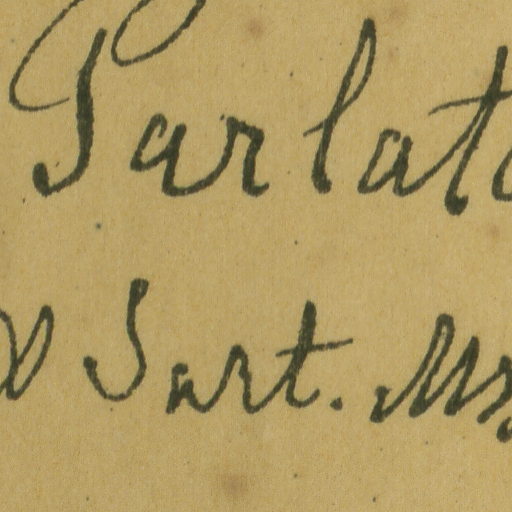 Parlato
Sart. Ms